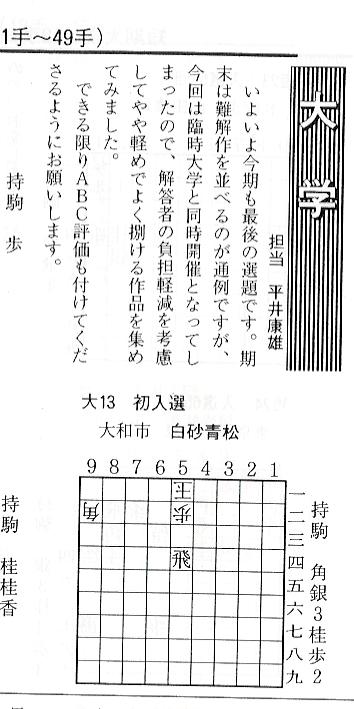 1手～49手）
大学
担当　平井康雄
いよいよ今期も最後の選題です。期
末は難解作を並べるのが通例ですが、
今回は臨時大学と同時開催となってし
まったので、解答者の負担軽減を考慮
してやや軽めでよく捌ける作品を集め
てみました。
できる限りＡＢＣ評価も付けてくだ
さるようにお願いします。
持駒　歩
大13　初入選
大和市　白砂青松
9 8 7 6 5 4 3 2 1
一二三四五六七八九
玉
角
歩
飛
持駒　角銀3桂歩2
持駒　桂桂香